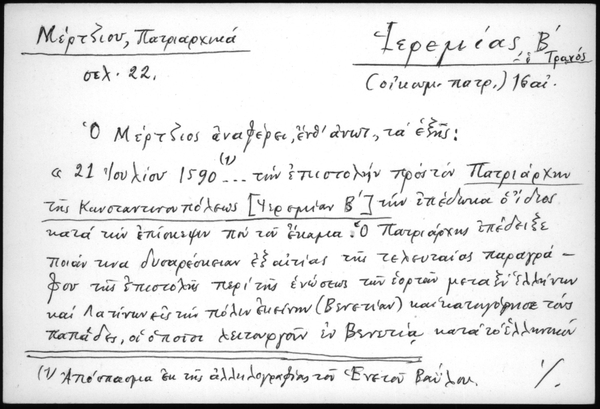 Μέρτζιου, Πατριαρχικά
σελ. 22.
Ἱερεμίας Β΄
- ὁ Τρανός
(οἰκουμ. πατρ.) 16 αἰ.
Ὁ Μέρτζιος ἀναφέρει, ἔνθ' ἀνωτ., τά ἑξῆς:
« 21 Ἰουλίου 1590 (1) ... τήν ἐπιστολήν πρός τόν Πατριάρχην
τῆς Κωνσταντινουπόλεως [Ἱερεμίαν Β΄] τήν ἐπέδωκα ὁ ἴδιος
κατά τήν ἐπίσκεψιν πού τοῦ ἔκαμα. Ὁ Πατριάρχης ἐπέδειξε
ποιάν τινα δυσαρέσκειαν ἐξ αἰτίας τῆς τελευταίας παραγρά-
φου τῆς ἐπιστολῆς περί τῆς ἑνώσεως τῶν ἑορτῶν μεταξύ Ἑλλήνων
καί Λατίνων εἰς τήν πόλιν ἐκείνην (Βενετίαν) καί κατηγόρησε τούς
παπάδες, οἱ ὁποῖοι λειτουργοῦν ἐν Βενετίᾳ κατά τό ἑλληνικόν
(1) Ἀπόσπασμα ἐκ τῆς ἀλληλογραφίας τοῦ Ἑνετοῦ Βαΐλου.
./.